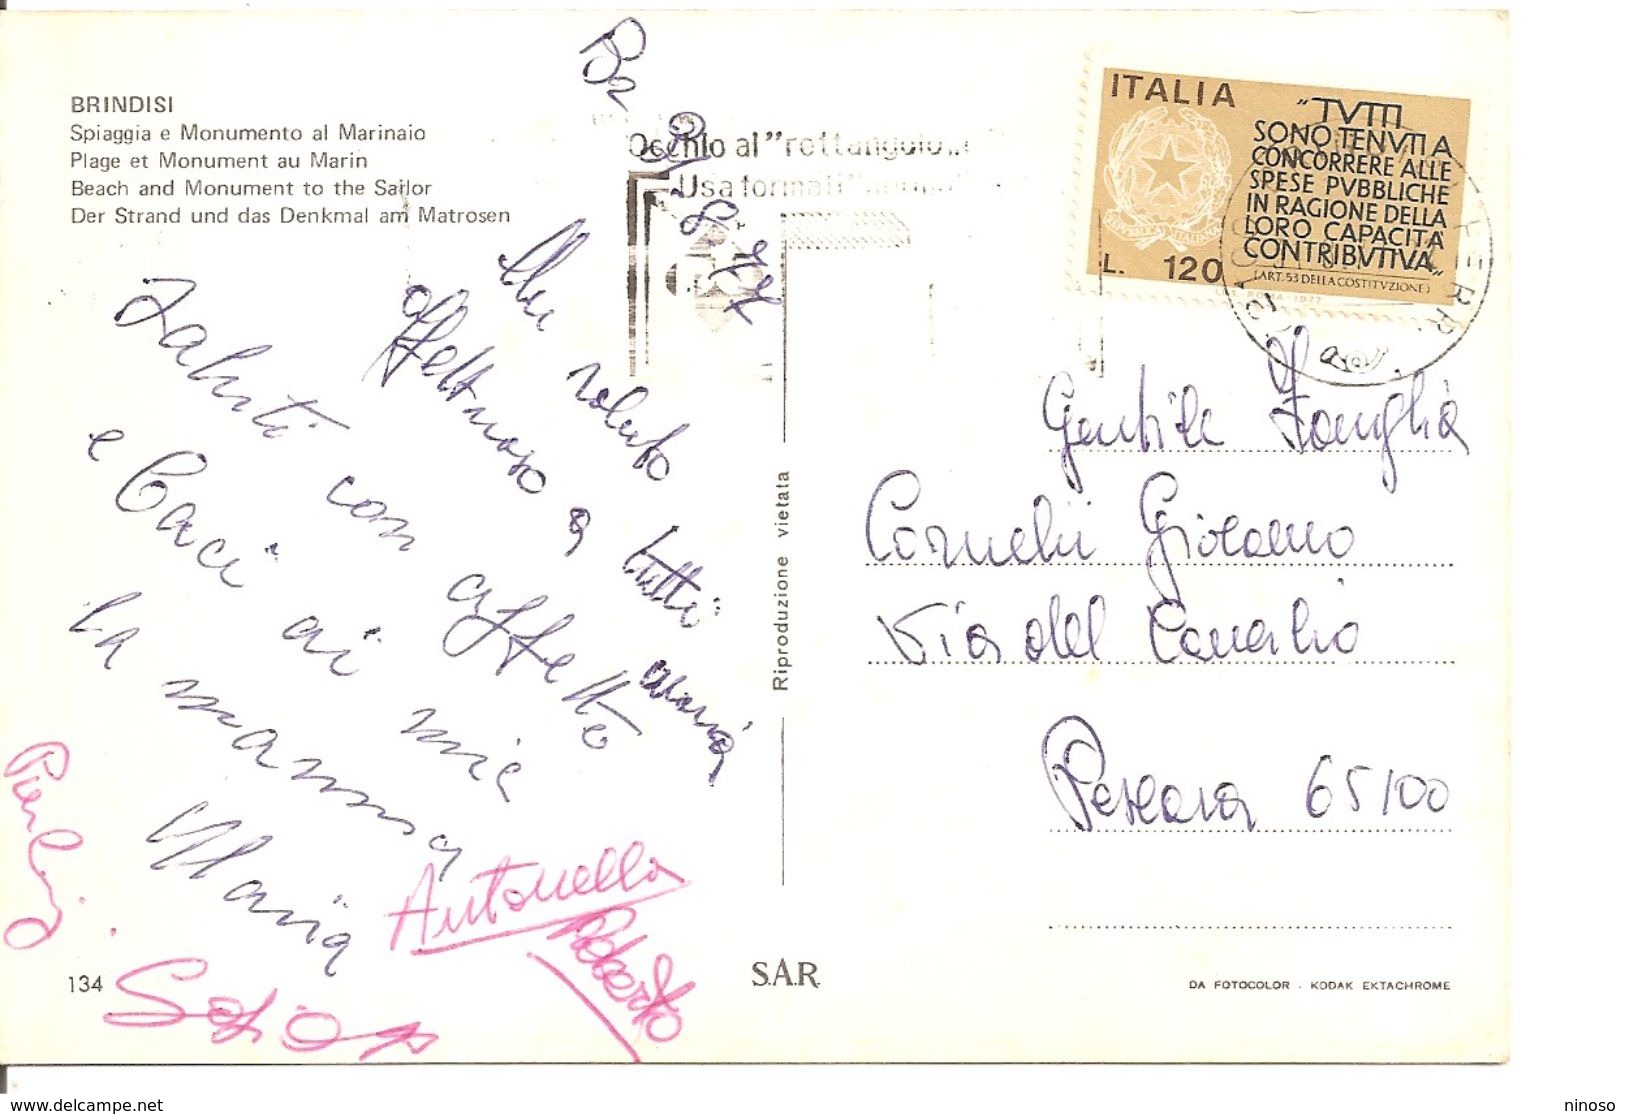 BRINDISI
Spiaggia e Monumento al Marinaio
Plage et Monument au Marin
Beach and Monument to the Sailor
Der Strand und das Denkmal am Matrosen
Occhio al "rettangolo"
Usa formati
ITALIA
"TVTTI
SONO TENVTI A
CONCORRERE ALLE
SPESE PVBBLICHE
IN RAGIONE DELLA
LORO CAPACITÀ
CONTRIBVTIVA„
(ART. 53 DELLA COSTITVZIONE)
L. 120
I.P.S. ROMA - 1977
Bz 31-8-77
Un saluto
affettuoso a tutti
Maria
Saluti con affetto
e Baci ai mie
la mamma
Maria
Pierluigi
Antonella
Roberto
Sofia
Riproduzione vietata
Gentile Famiglia
Cornelii Girolamo
Via del
Pescara 65100
134
S.A.R.
DA FOTOCOLOR - KODAK EKTACHROME
www.delcampe.net
ninoso